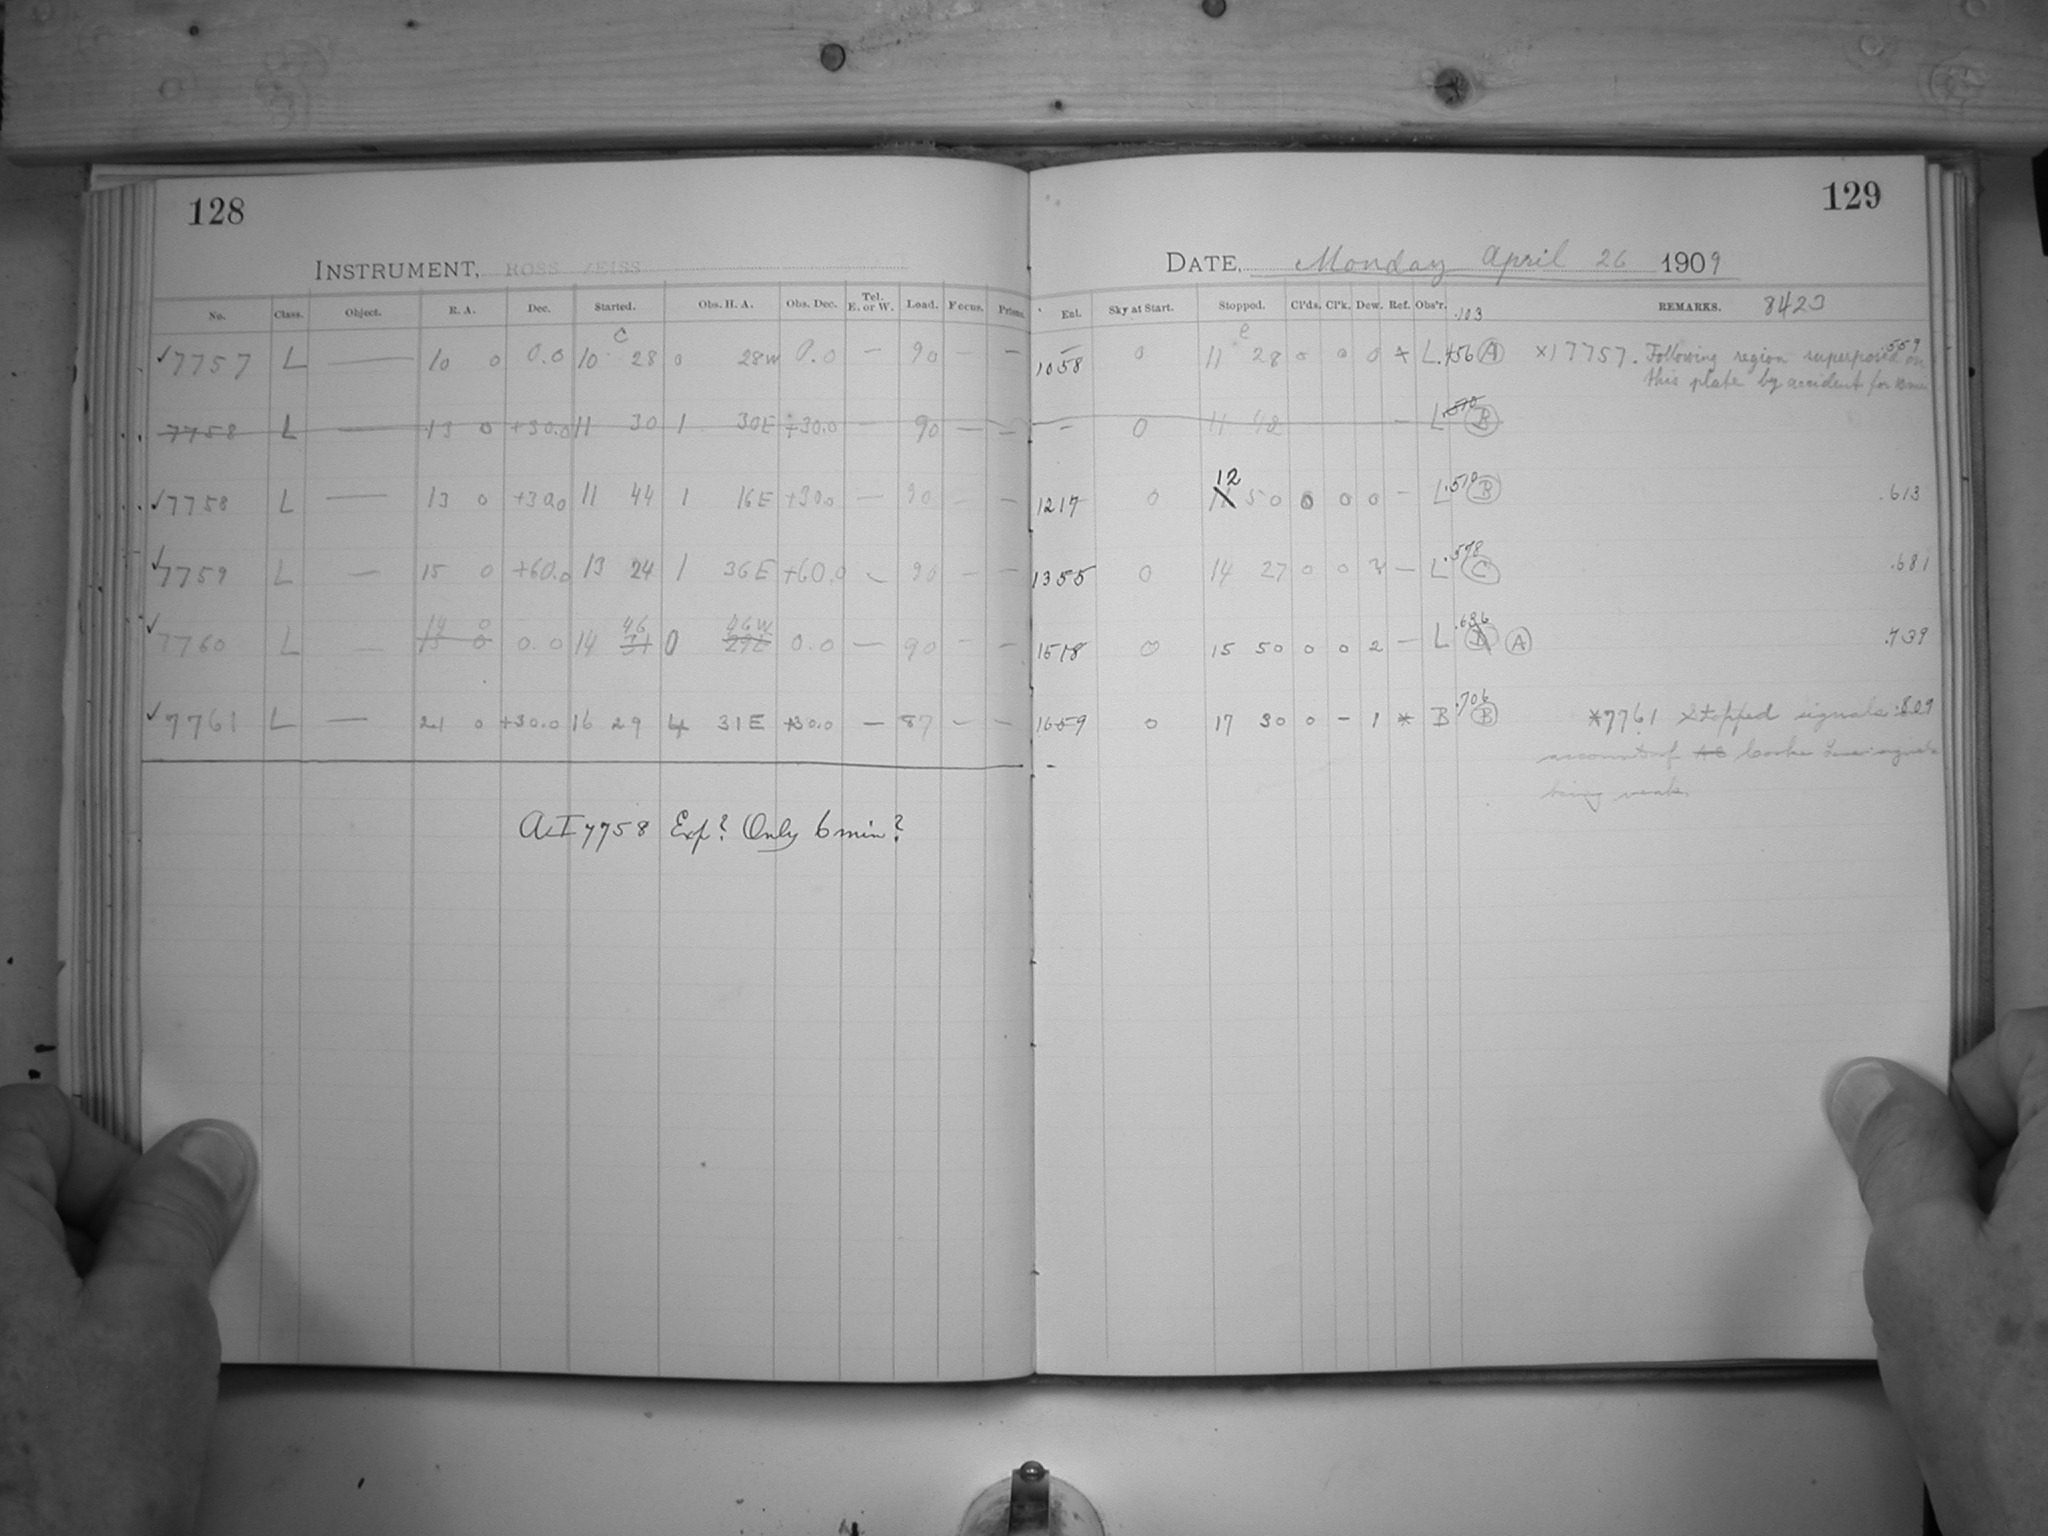 128
129
INSTRUMENT, ROSS ZEISS
DATE, Monday April 26 1909
No. Class. Object. R. A. Dec. Started. Obs. H. A. Obs. Dec. Tel. E. or W. Load. Focus. Prisms. Ent. Sky at Start. Stopped. Cl'ds. Cl'k. Dew. Ref. Obs'r. .103 REMARKS. 8423
✓7757 L — 10 0 0.0 10 28 0 28W 0.0 — 90 — — 1058 0 11 28 0 0 0 * L .456 A ×17757. Following region superposed on .559
this plate by accident for
7758 L — 13 0 +30.0 11 30 1 30E +30.0 — 90 — — — 0 — L .510 B
✓7758 L — 13 0 +30.0 11 44 1 16E +30.0 — 90 — — 1217 0 12 50 0 0 0 — L .510 B .613
✓7759 L — 15 0 +60.0 13 24 1 36E +60.0 — 90 — — 1355 0 14 27 0 0 2 — L .578 C .681
✓7760 L — 14 0 0.0 14 46 0 46W 0.0 — 90 — — 1518 0 15 50 0 0 2 — L .636 A .739
✓7761 L — 21 0 +30.0 16 29 4 31E +30.0 — 87 — — 1659 0 17 30 0 — 1 * B .706 B *7761 Stopped signals .809
account of Cooke
being weak.
A.I 7758 Exp? Only 6 min?